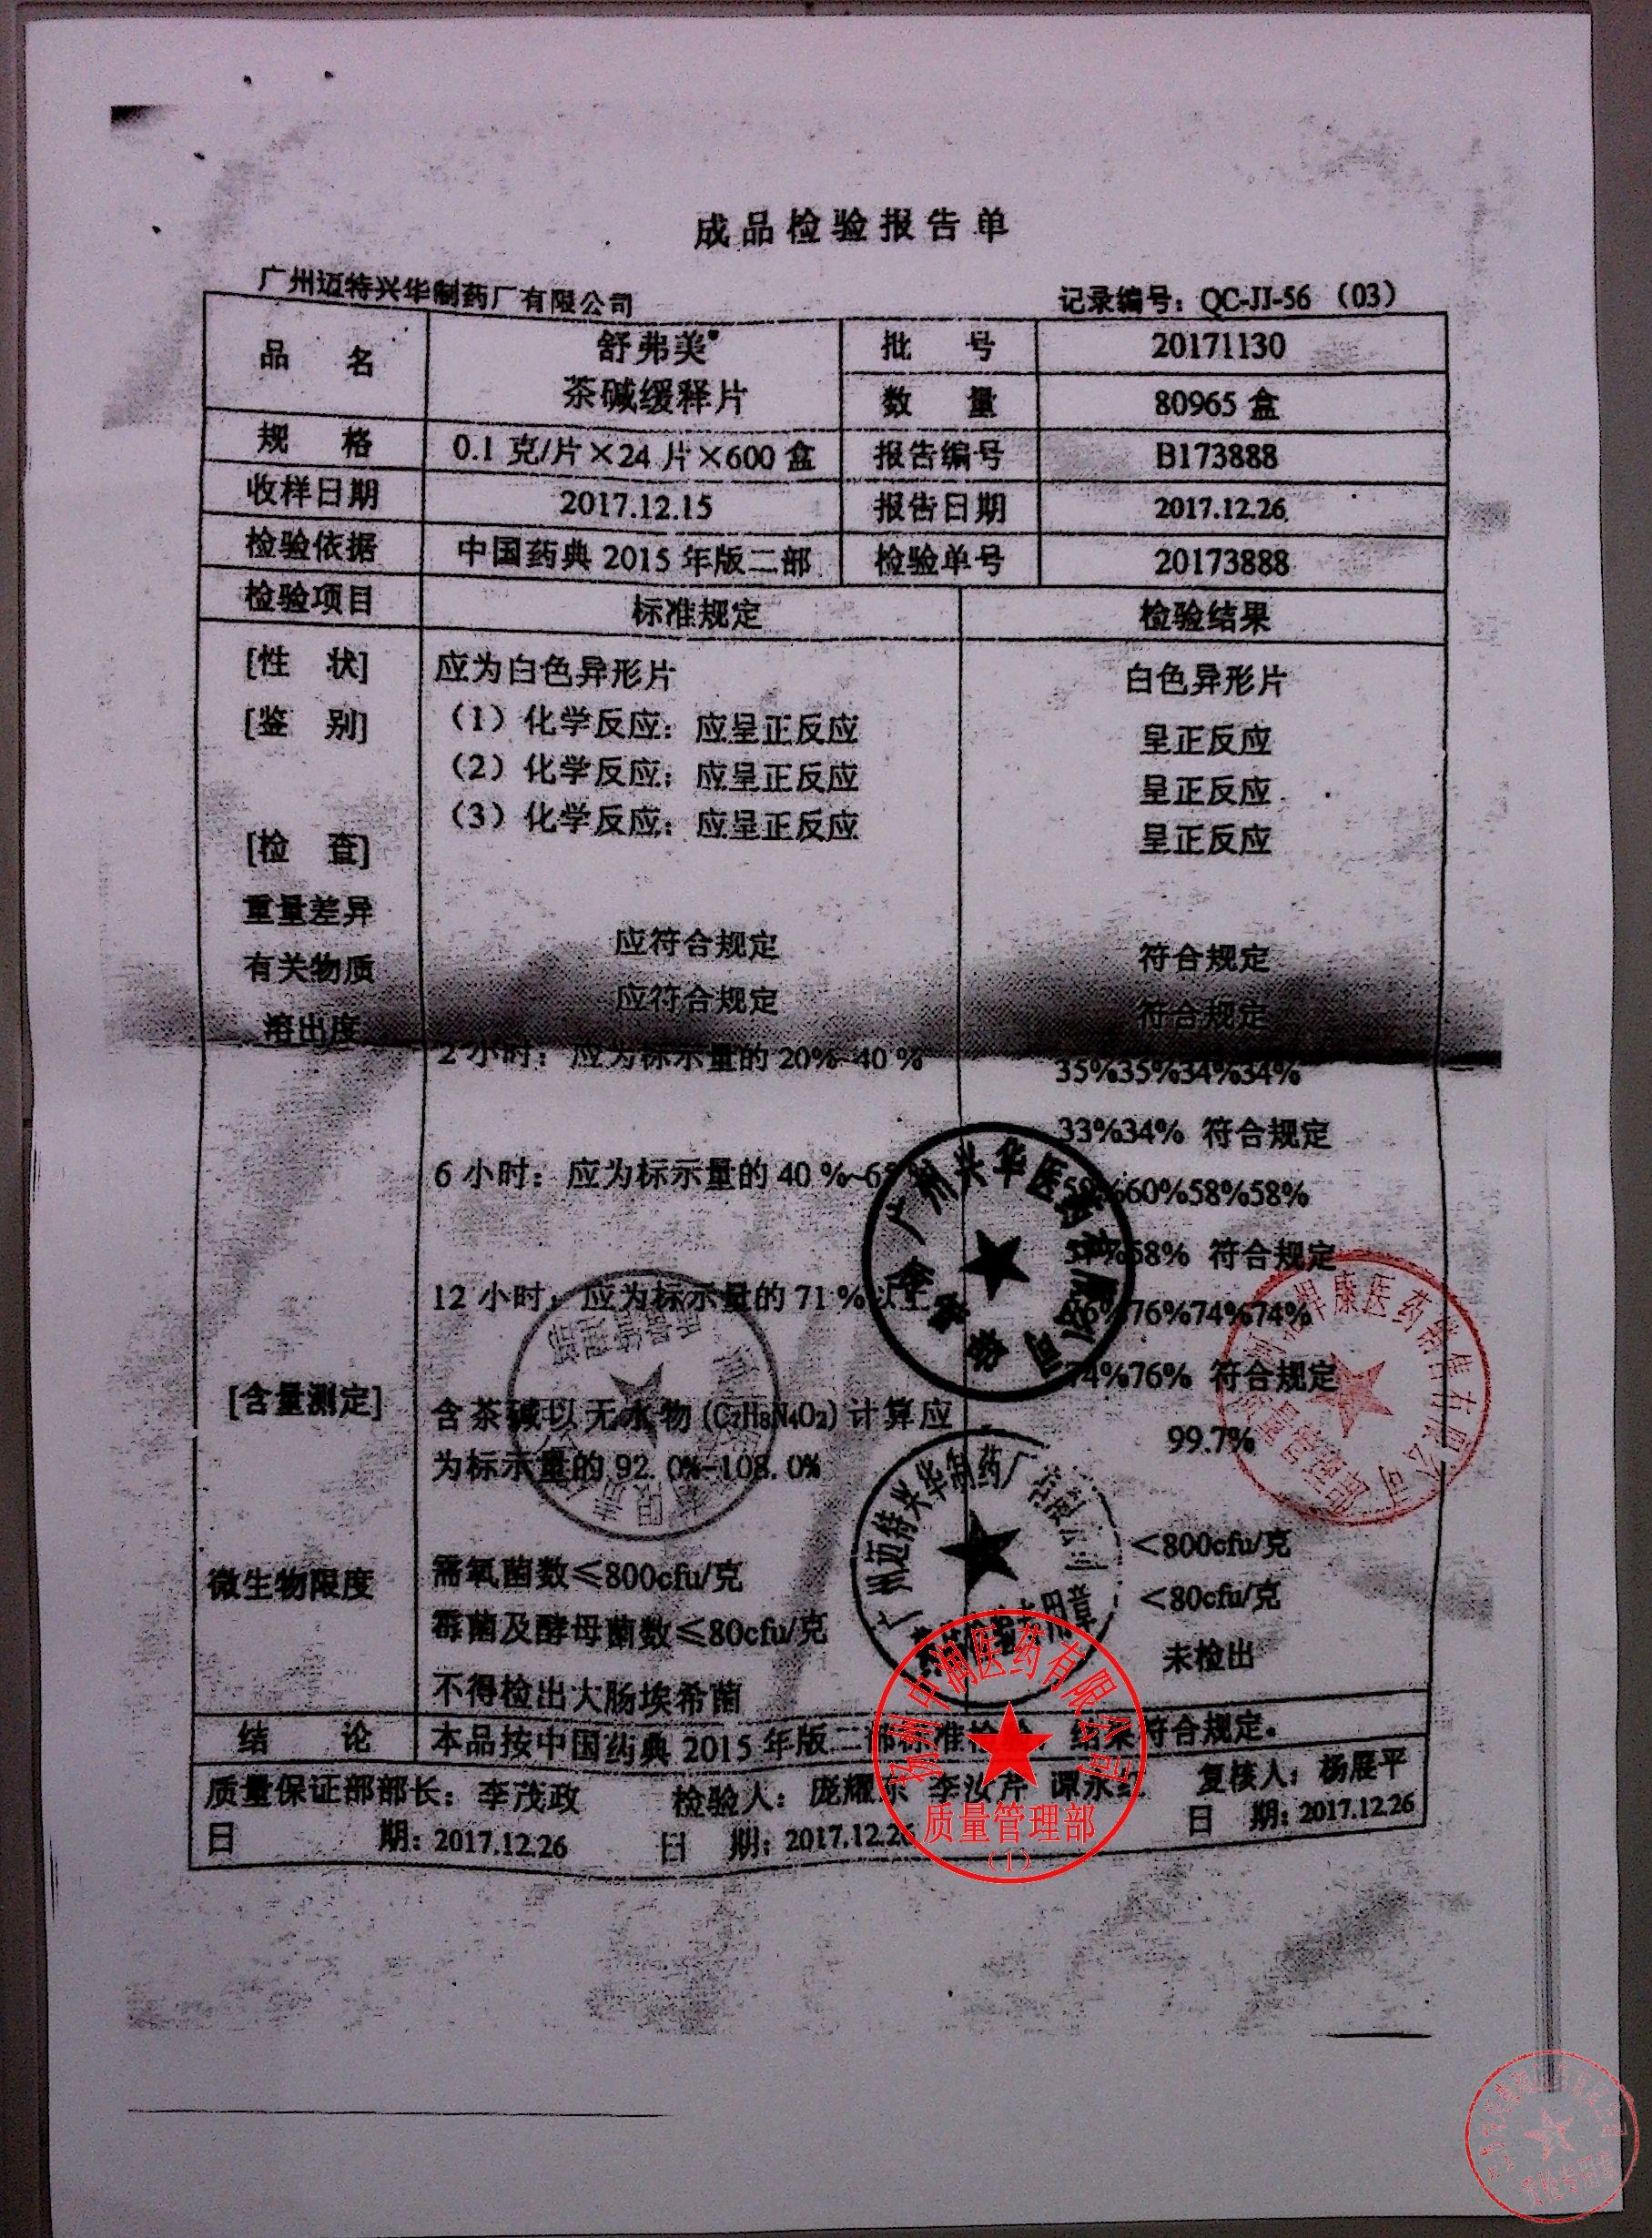 成品检验报告单
广州迈特兴华制药厂有限公司 记录编号：QC-JJ-56（03）
品名 舒弗美 批号 20171130
茶碱缓释片 数量 80965 盒
规格 0.1 克/片×24 片×600 盒 报告编号 B173888
收样日期 2017.12.15 报告日期 2017.12.26
检验依据 中国药典 2015 年版二部 检验单号 20173888
检验项目 标准规定 检验结果
[性状] 应为白色异形片 白色异形片
[鉴别] （1）化学反应：应呈正反应 呈正反应
（2）化学反应：应呈正反应 呈正反应
（3）化学反应：应呈正反应 呈正反应
[检查]
重量差异 应符合规定 符合规定
有关物质 应符合规定 符合规定
溶出度 2 小时：应为标示量的 20%~40 % 35%35%34%34%
33%34% 符合规定
6 小时：应为标示量的 40 %~ 60%58%58%
58% 符合规定
12 小时：应为标示量的 71 % 76%74%74%
74%76% 符合规定
[含量测定] 含茶碱以无水物(C7H8N4O2)计算应
为标示量的 92.0%-108.0% 99.7%
微生物限度 需氧菌数≤800cfu/克 <800cfu/克
霉菌及酵母菌数≤80cfu/克 <80cfu/克
不得检出大肠埃希菌 未检出
结论 本品按中国药典 2015 年版二部标准检验，结果符合规定。
质量保证部部长：李茂政 检验人：庞耀东 李汝芹 谭永 复核人：杨展平
日期：2017.12.26 日期：2017.12.26 日期：2017.12.26
广州兴华医药有限公司
业务
广州迈特兴华制药厂有限公司
专用章
质量管理部
康医药销售有限公司
质量管理部
扬州中润医药有限公司
质量管理部
（1）
质检专用章